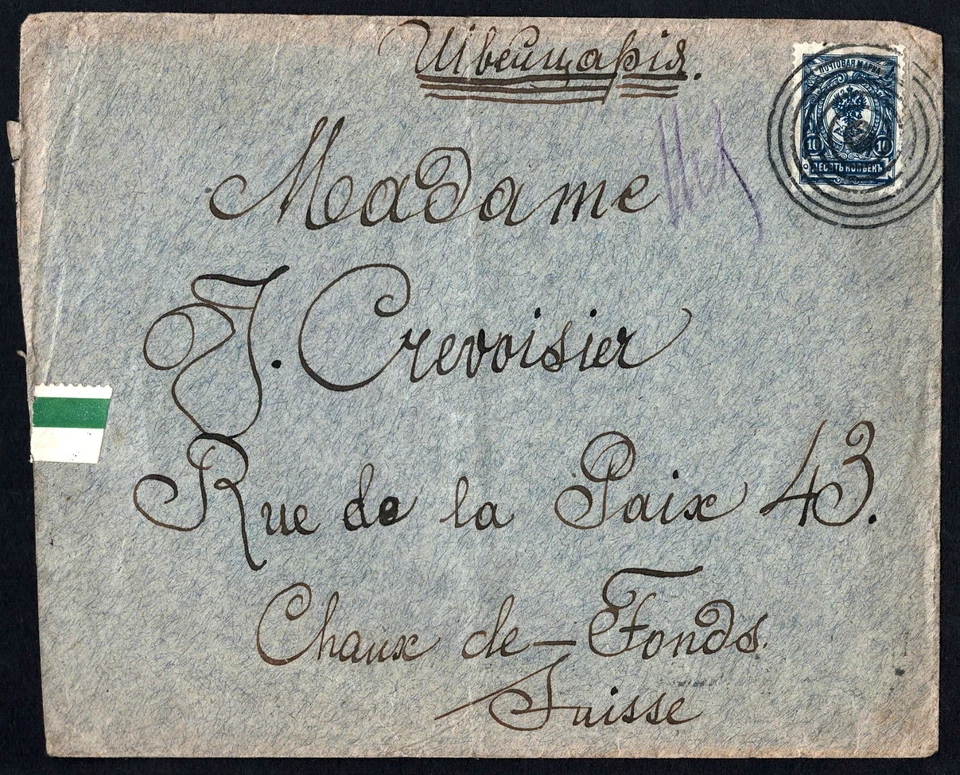 Швейцарія.
ПОЧТОВАЯ МАРКА
10 10
ДЕСЯТЬ КОПѢЕКЪ
Madame
J. Crevoisier
Rue de la Paix 43.
Chaux de-Fonds.
Suisse